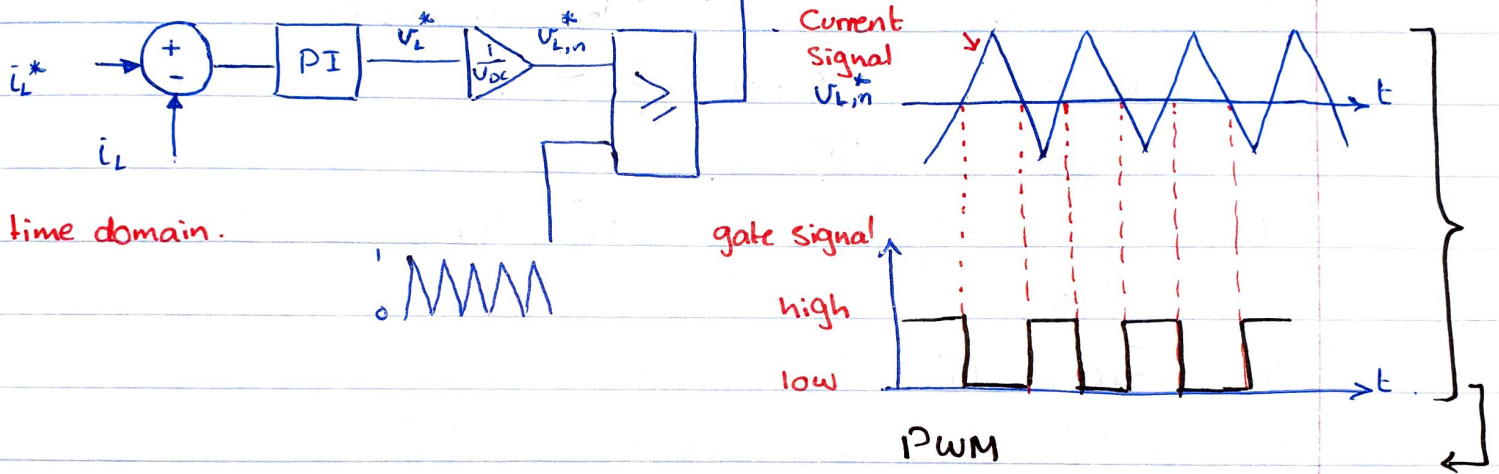 i_L*
+
-
i_L
PI
v_L*
1/v_DC
v_L,n*
≥
time domain.
1
0
Current
Signal
v_L,n*
t
gate signal
high
low
t
PWM